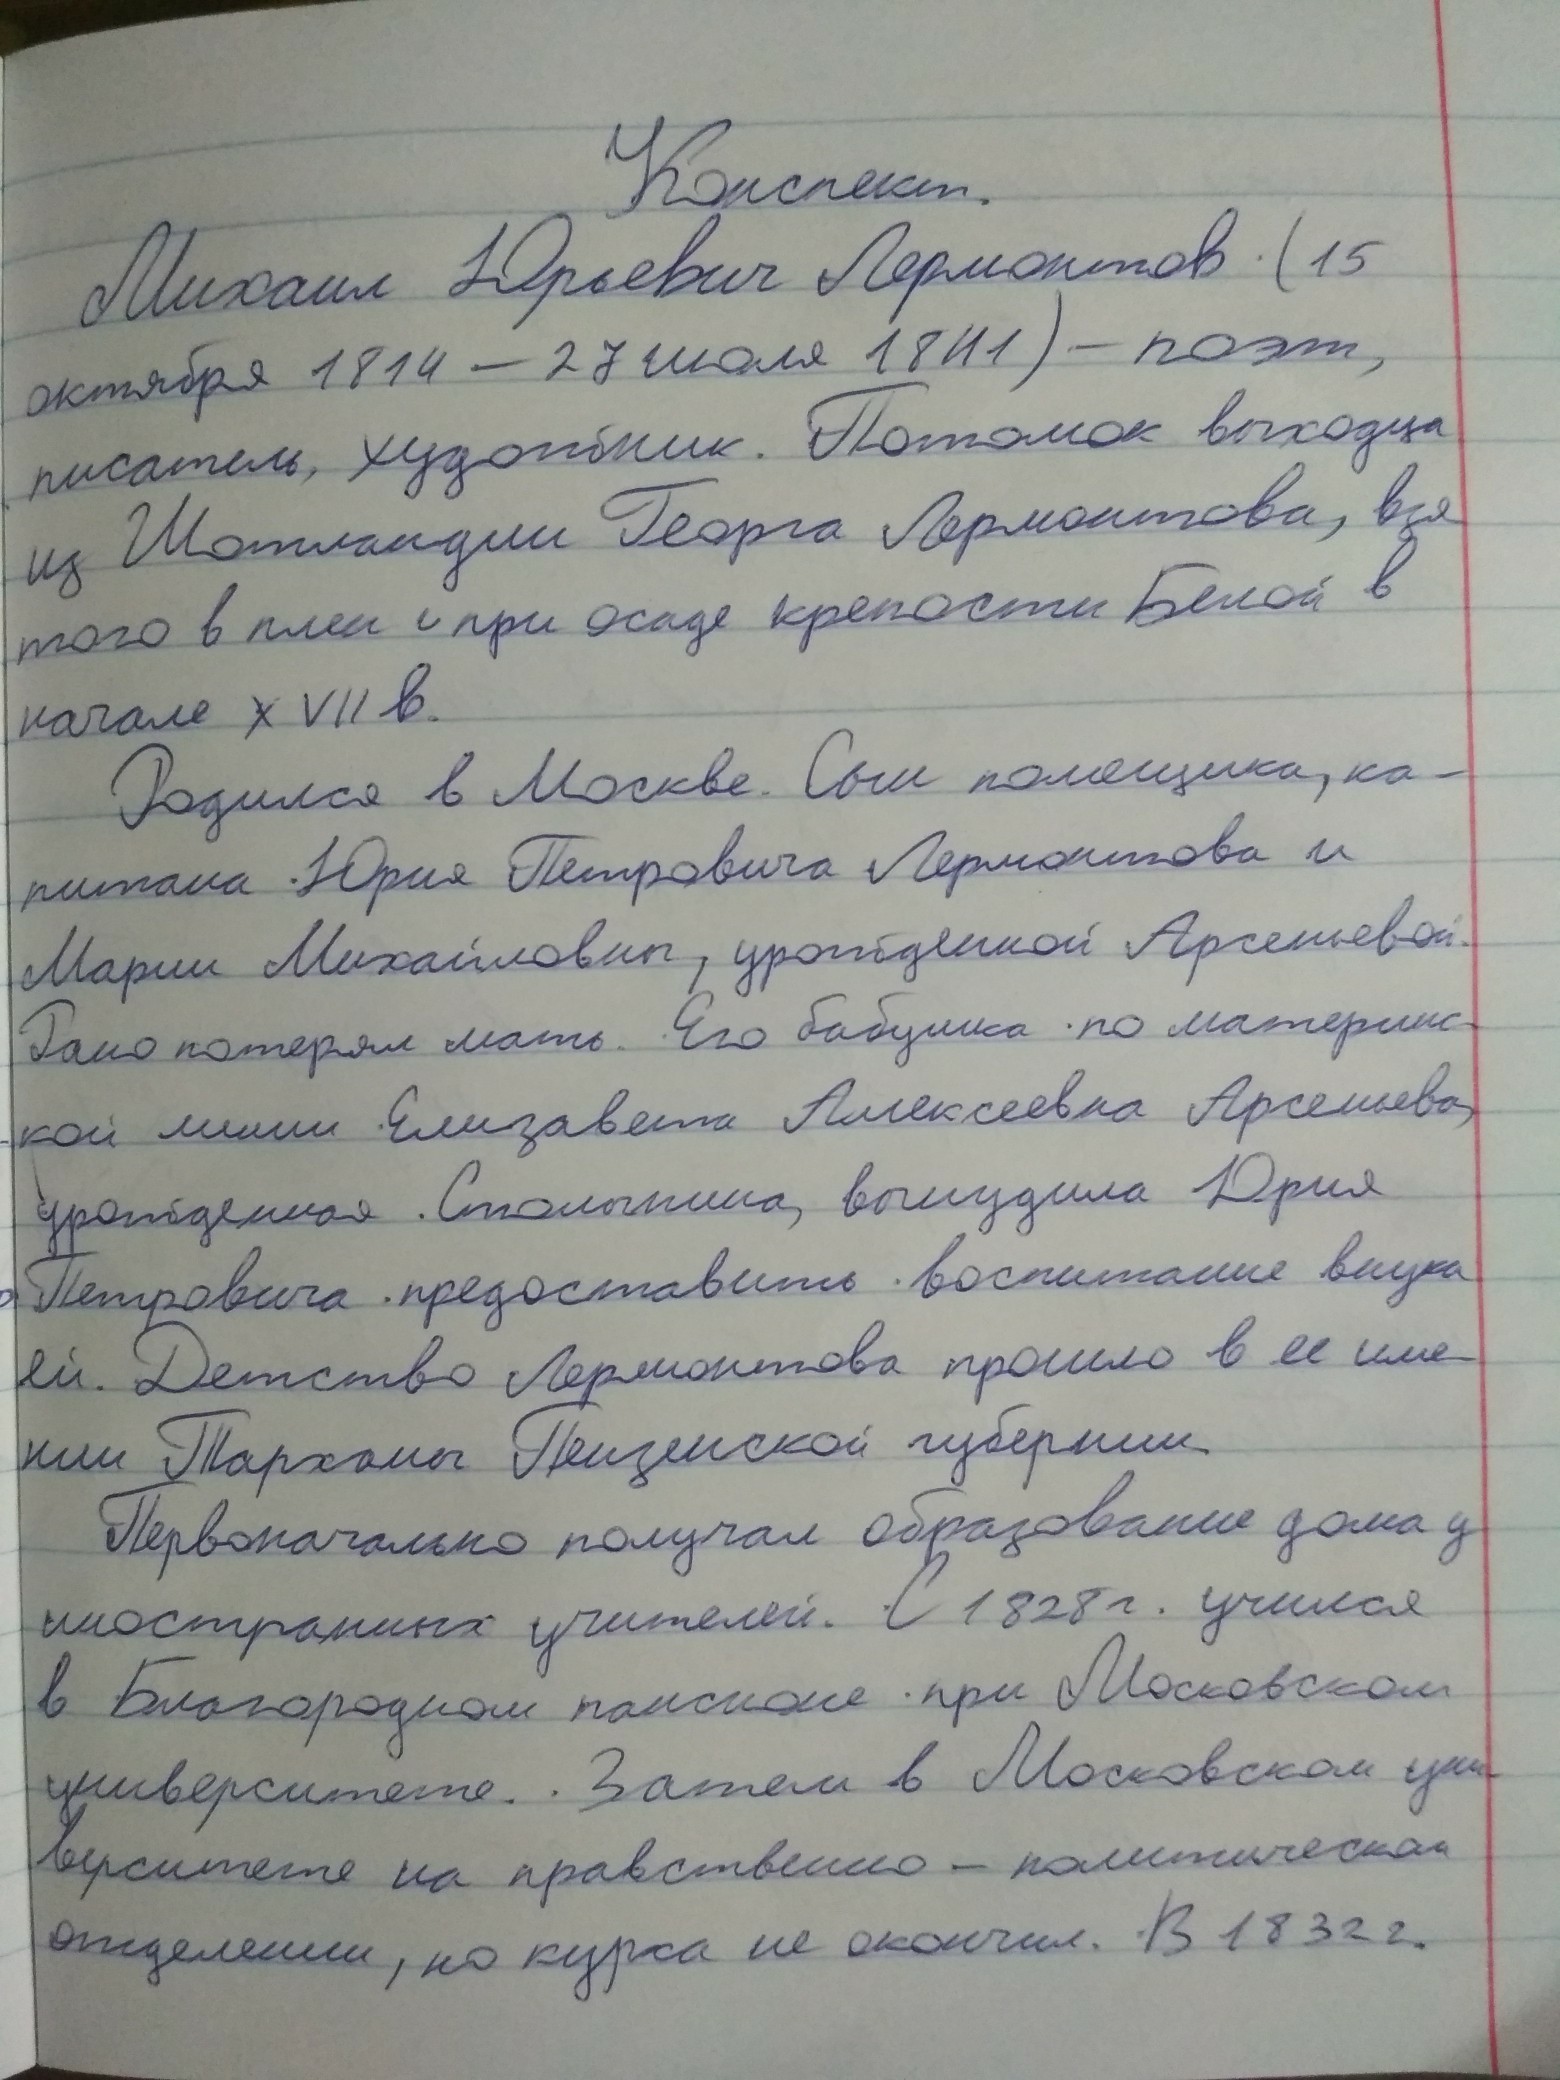 Конспект.
Михаил Юрьевич Лермонтов (15
октября 1814 – 27 июля 1841) – поэт,
писатель, художник. Потомок выходца
из Шотландии Георга Лермонтова, взя
того в плен при осаде крепости Белой в
начале XVII в.
Родился в Москве. Сын помещика, ка-
питана Юрия Петровича Лермонтова и
Марии Михайловны, урождённой Арсеньевой.
Рано потерял мать. Его бабушка по материнс-
кой линии Елизавета Алексеевна Арсеньева,
урожденная Столыпина, вынудила Юрия
Петровича предоставить воспитание внука
ей. Детство Лермонтова прошло в ее име-
нии Тарханы Пензенской губернии.
Первоначально получал образование дома у
иностранных учителей. С 1828 г. учился
в Благородном пансионе при Московском
университете. Затем в Московском уни-
верситете на нравственно – политическом
отделении, но курса не окончил. В 1832 г.